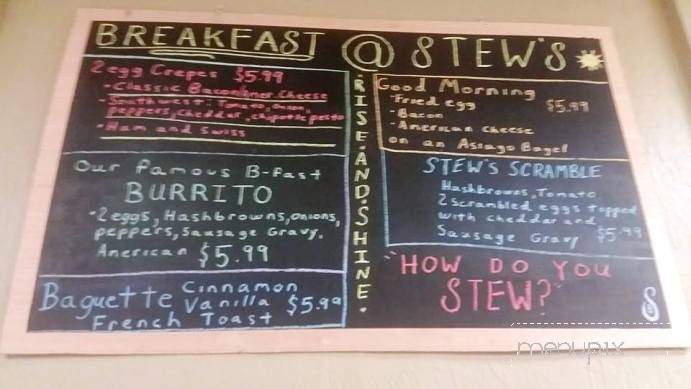 BREAKFAST @ STEW'S
2 egg Crepes $5.99
- Classic Bacon and Cheese
- Southwest: Tomato, onion,
peppers, cheddar, chipotle pesto
- Ham and Swiss
Our famous B-fast
BURRITO
- 2 eggs, Hashbrowns, onions,
peppers, Sausage Gravy,
American $5.99
Baguette Cinnamon
Vanilla $5.99
French Toast
RISE.AND.SHINE.
Good Morning
- Fried egg $5.99
- Bacon
- American cheese
on an Asiago Bagel
STEW'S SCRAMBLE
Hashbrowns, Tomato
2 Scrambled eggs topped
with cheddar and
Sausage Gravy $5.99
"HOW DO YOU
STEW?"
S
menupix